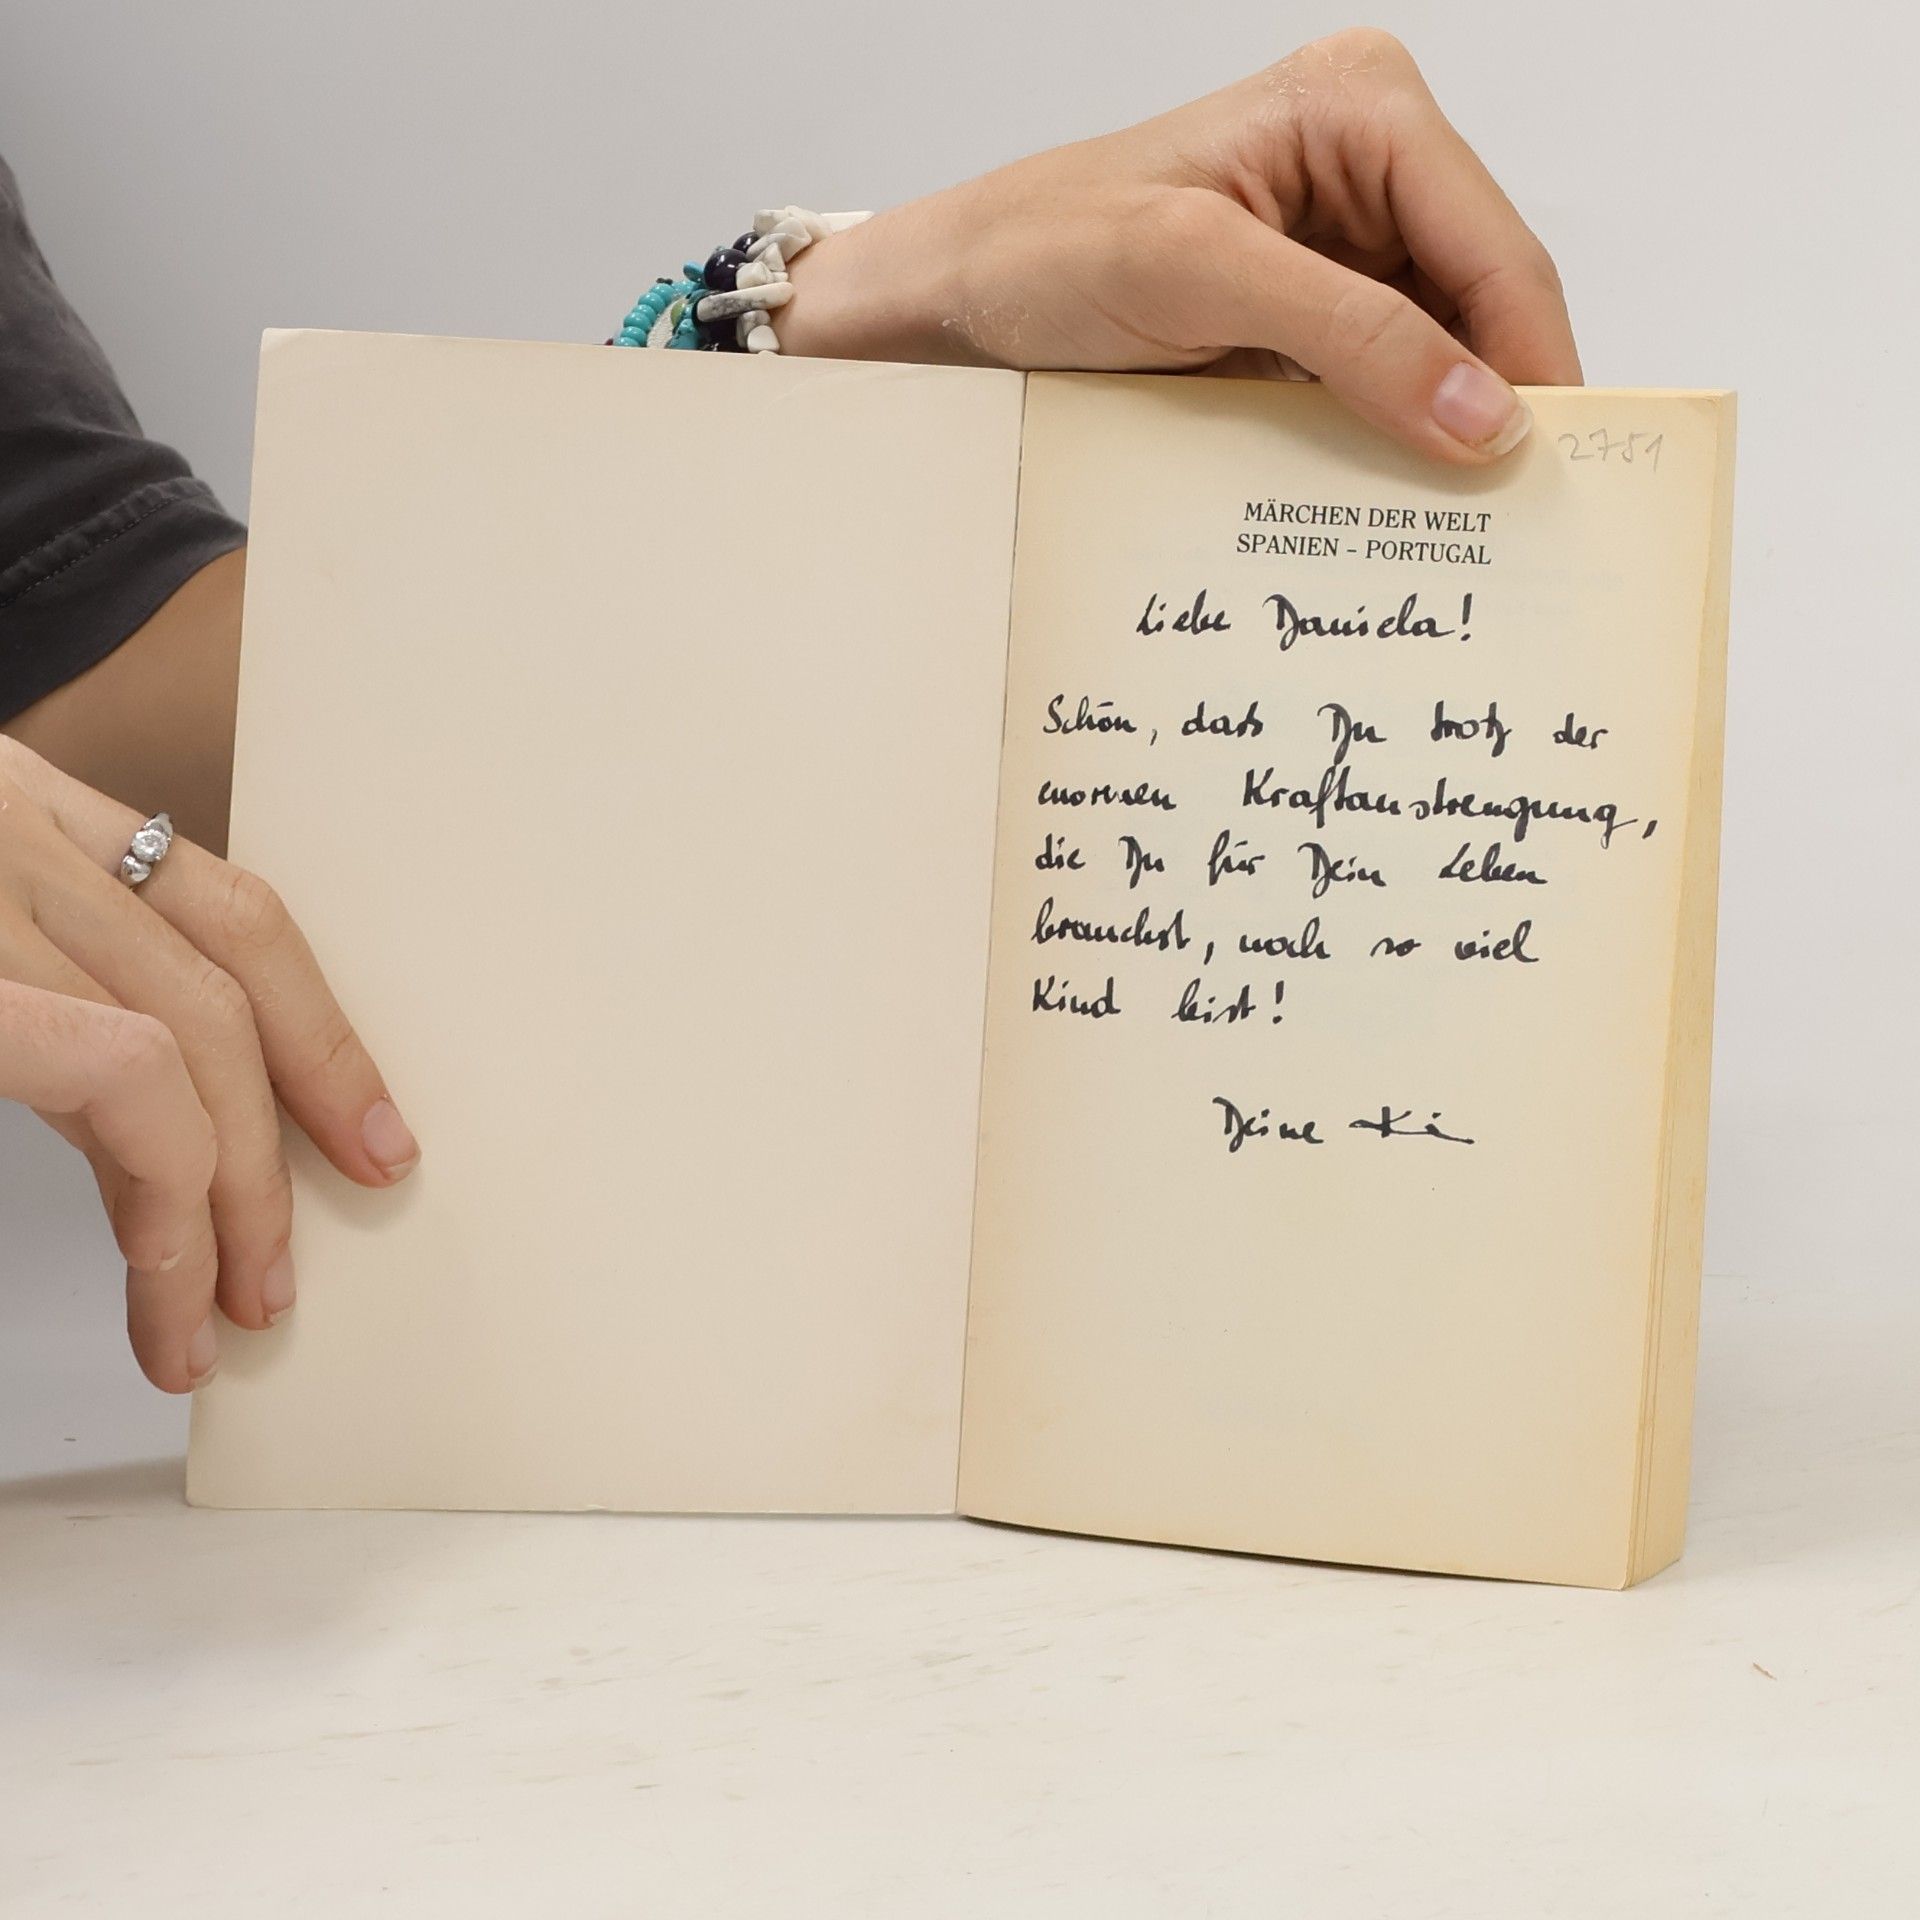 2751
MÄRCHEN DER WELT
SPANIEN – PORTUGAL
Liebe Daniela!
Schön, daß Du trotz der
enormen Kraftanstrengung,
die Du für Dein Leben
brauchst, noch so viel
Kind bist!
Deine